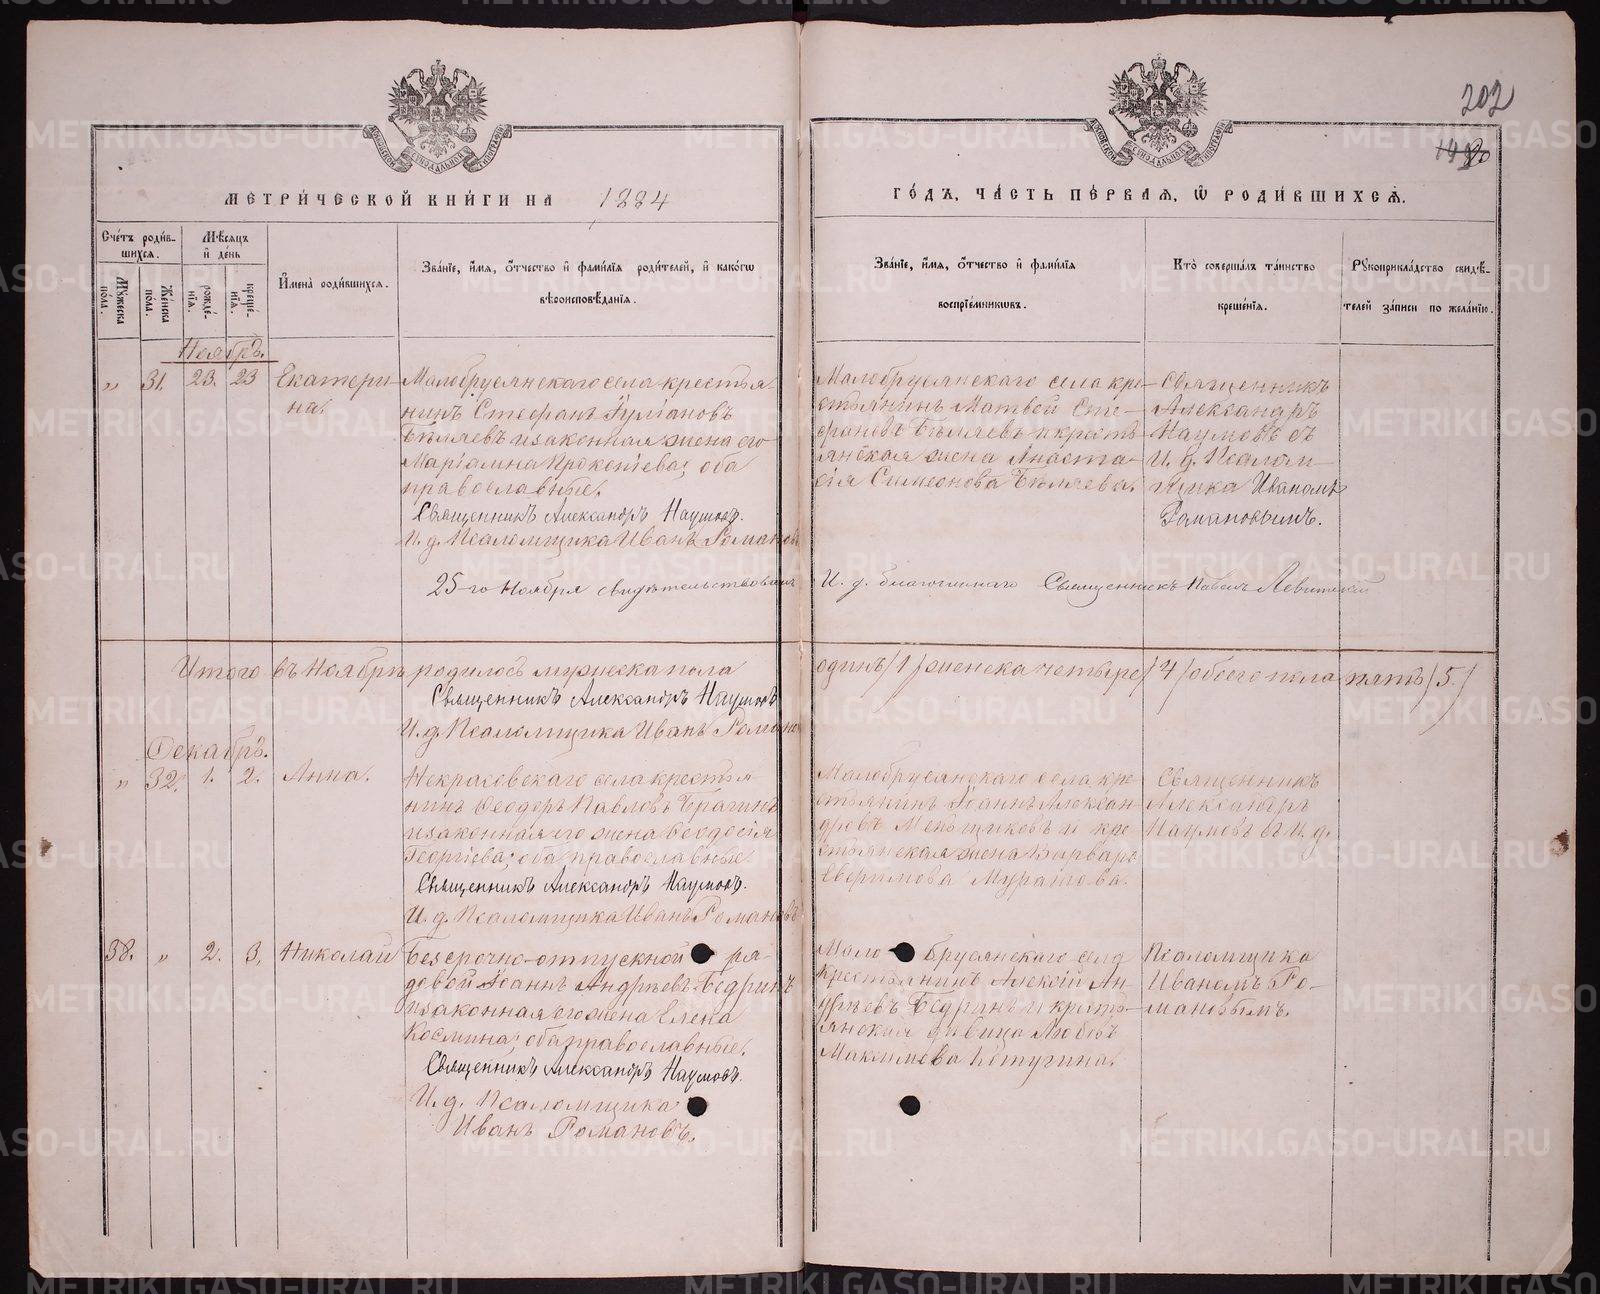 202
МЕТРИ́ЧЕСКОЙ КНИ́ГИ НА 1884
ГО́ДЪ, ЧА́СТЬ ПЕ́РВАЯ, Ѡ РОДИ́ВШИХСЯ.
Счетъ роди́в-
шихся.
Му́жеска
по́ла.
Же́нска
по́ла.
Мѣсяцъ
и де́нь
рожде́-
нїя.
креще́-
нїя.
Имена̀ роди́вшихся.
Зва́нїе, и́мя, о́тчество и фами́лїя роди́телей, и како́гѡ
вѣроисповѣ́данїя.
Зва́нїе, и́мя, о́тчество и фами́лїя
воспрїе́мниковъ.
Кто̀ соверша́лъ та́инство
креще́нїя.
Рукоприкла́дство свидѣ́-
телей за́писи по жела́нїю.
Ноябрь.
„ 31. 23. 23 Екатери-
на.
Малобрусянскаго села крестья
нинъ Стефанъ Іуліановъ
Бѣляевъ и законная жена его
Маріамна Прокопіева; оба
православные.
Священникъ Александръ Наумовъ.
И. д. Псаломщика Иванъ Романовъ
Малобрусянскаго села кре-
стьянинъ Матвей Сте-
фановъ Бѣляевъ и кресть
янская жена Анаста-
сія Симеонова Бѣляева.
Священникъ
Александръ
Наумовъ съ
И. д. Псалом-
щика Иваномъ
Романовымъ.
25-го Ноября свидѣтельствовалъ И. д. благочиннаго Священникъ Павелъ Левитскій
Итого въ Ноябрѣ родилось мужеска пола одинъ /1/ женска четыре /4/ обоего пола пять /5./
Священникъ Александръ Наумовъ
И. д. Псаломщика Иванъ Романовъ
Декабрь.
„ 32. 1. 2. Анна.
Некрасовскаго села крестья
нинъ Ѳеодоръ Павловъ Брагинъ
и законная его жена Ѳеодосія
Георгіева; оба православные.
Священникъ Александръ Наумовъ.
И. д. Псаломщика Иванъ Романовъ
Малобрусянскаго села кре-
стьянинъ Іоаннъ Алексан-
дровъ Меньщиковъ и кре
стьянская жена Варвара
Мурашова.
Священникъ
Александръ
Наумовъ съ И. д.
38. „ 2. 3. Николай
Безсрочно-отпускной ря-
довой Іоаннъ Андреевъ Бедринъ
и законная его жена Елена
Космина; оба православные.
Священникъ Александръ Наумовъ.
И. д. Псаломщика
Иванъ Романовъ.
Мало Брусянскаго села
крестьянинъ Алексій Ан-
дреевъ Бедринъ и кресть-
янская дѣвица Любовь
Максимова
Псаломщика
Иваномъ Ро-
мановымъ.
METRIKI.GASO-URAL.RU